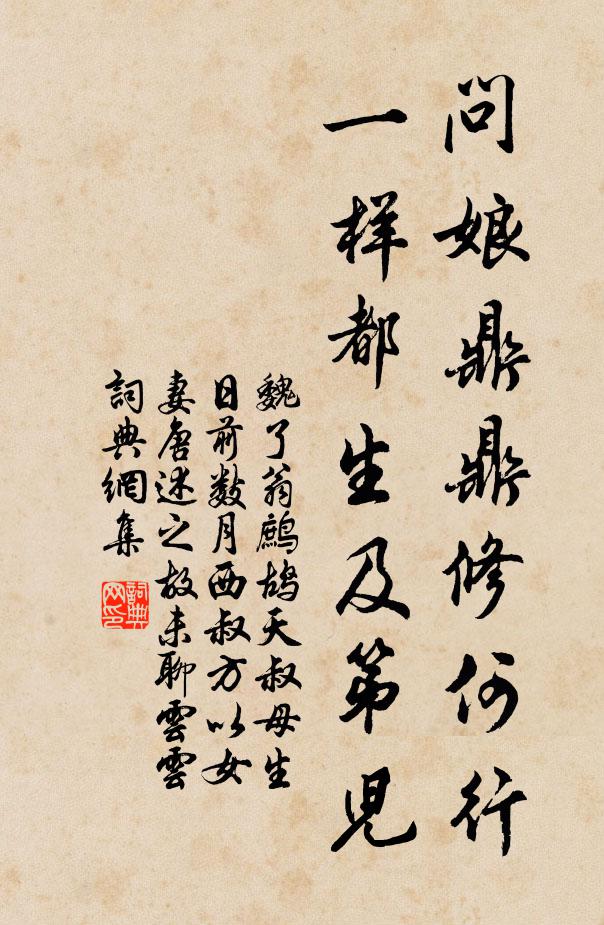 問娘鼎鼎修何行
一样都生及第兒
魏了翁鷓鴣天叔母生
日前数月西叔方以女
妻唐述之故末聊雲雲
詞典網集
詞典
网印